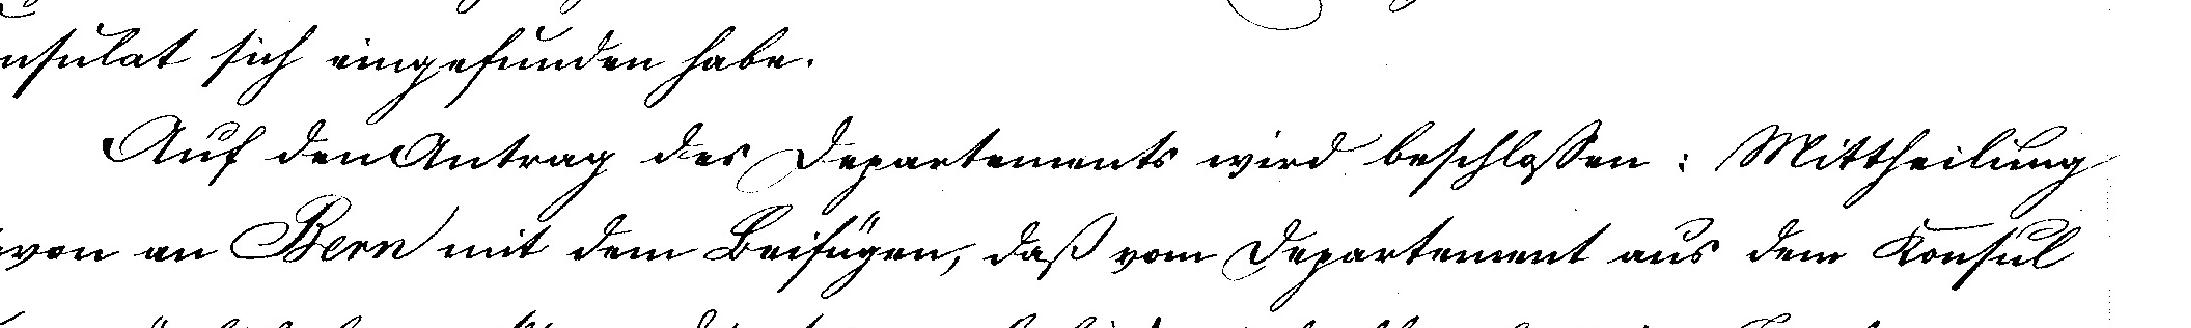 nsulat sich eingefunden habe.
Auf den Antrag des Departements wird beschlossen: Mittheilung
von an Bern mit dem Beifügen, daß vom Departement aus dem Konsul